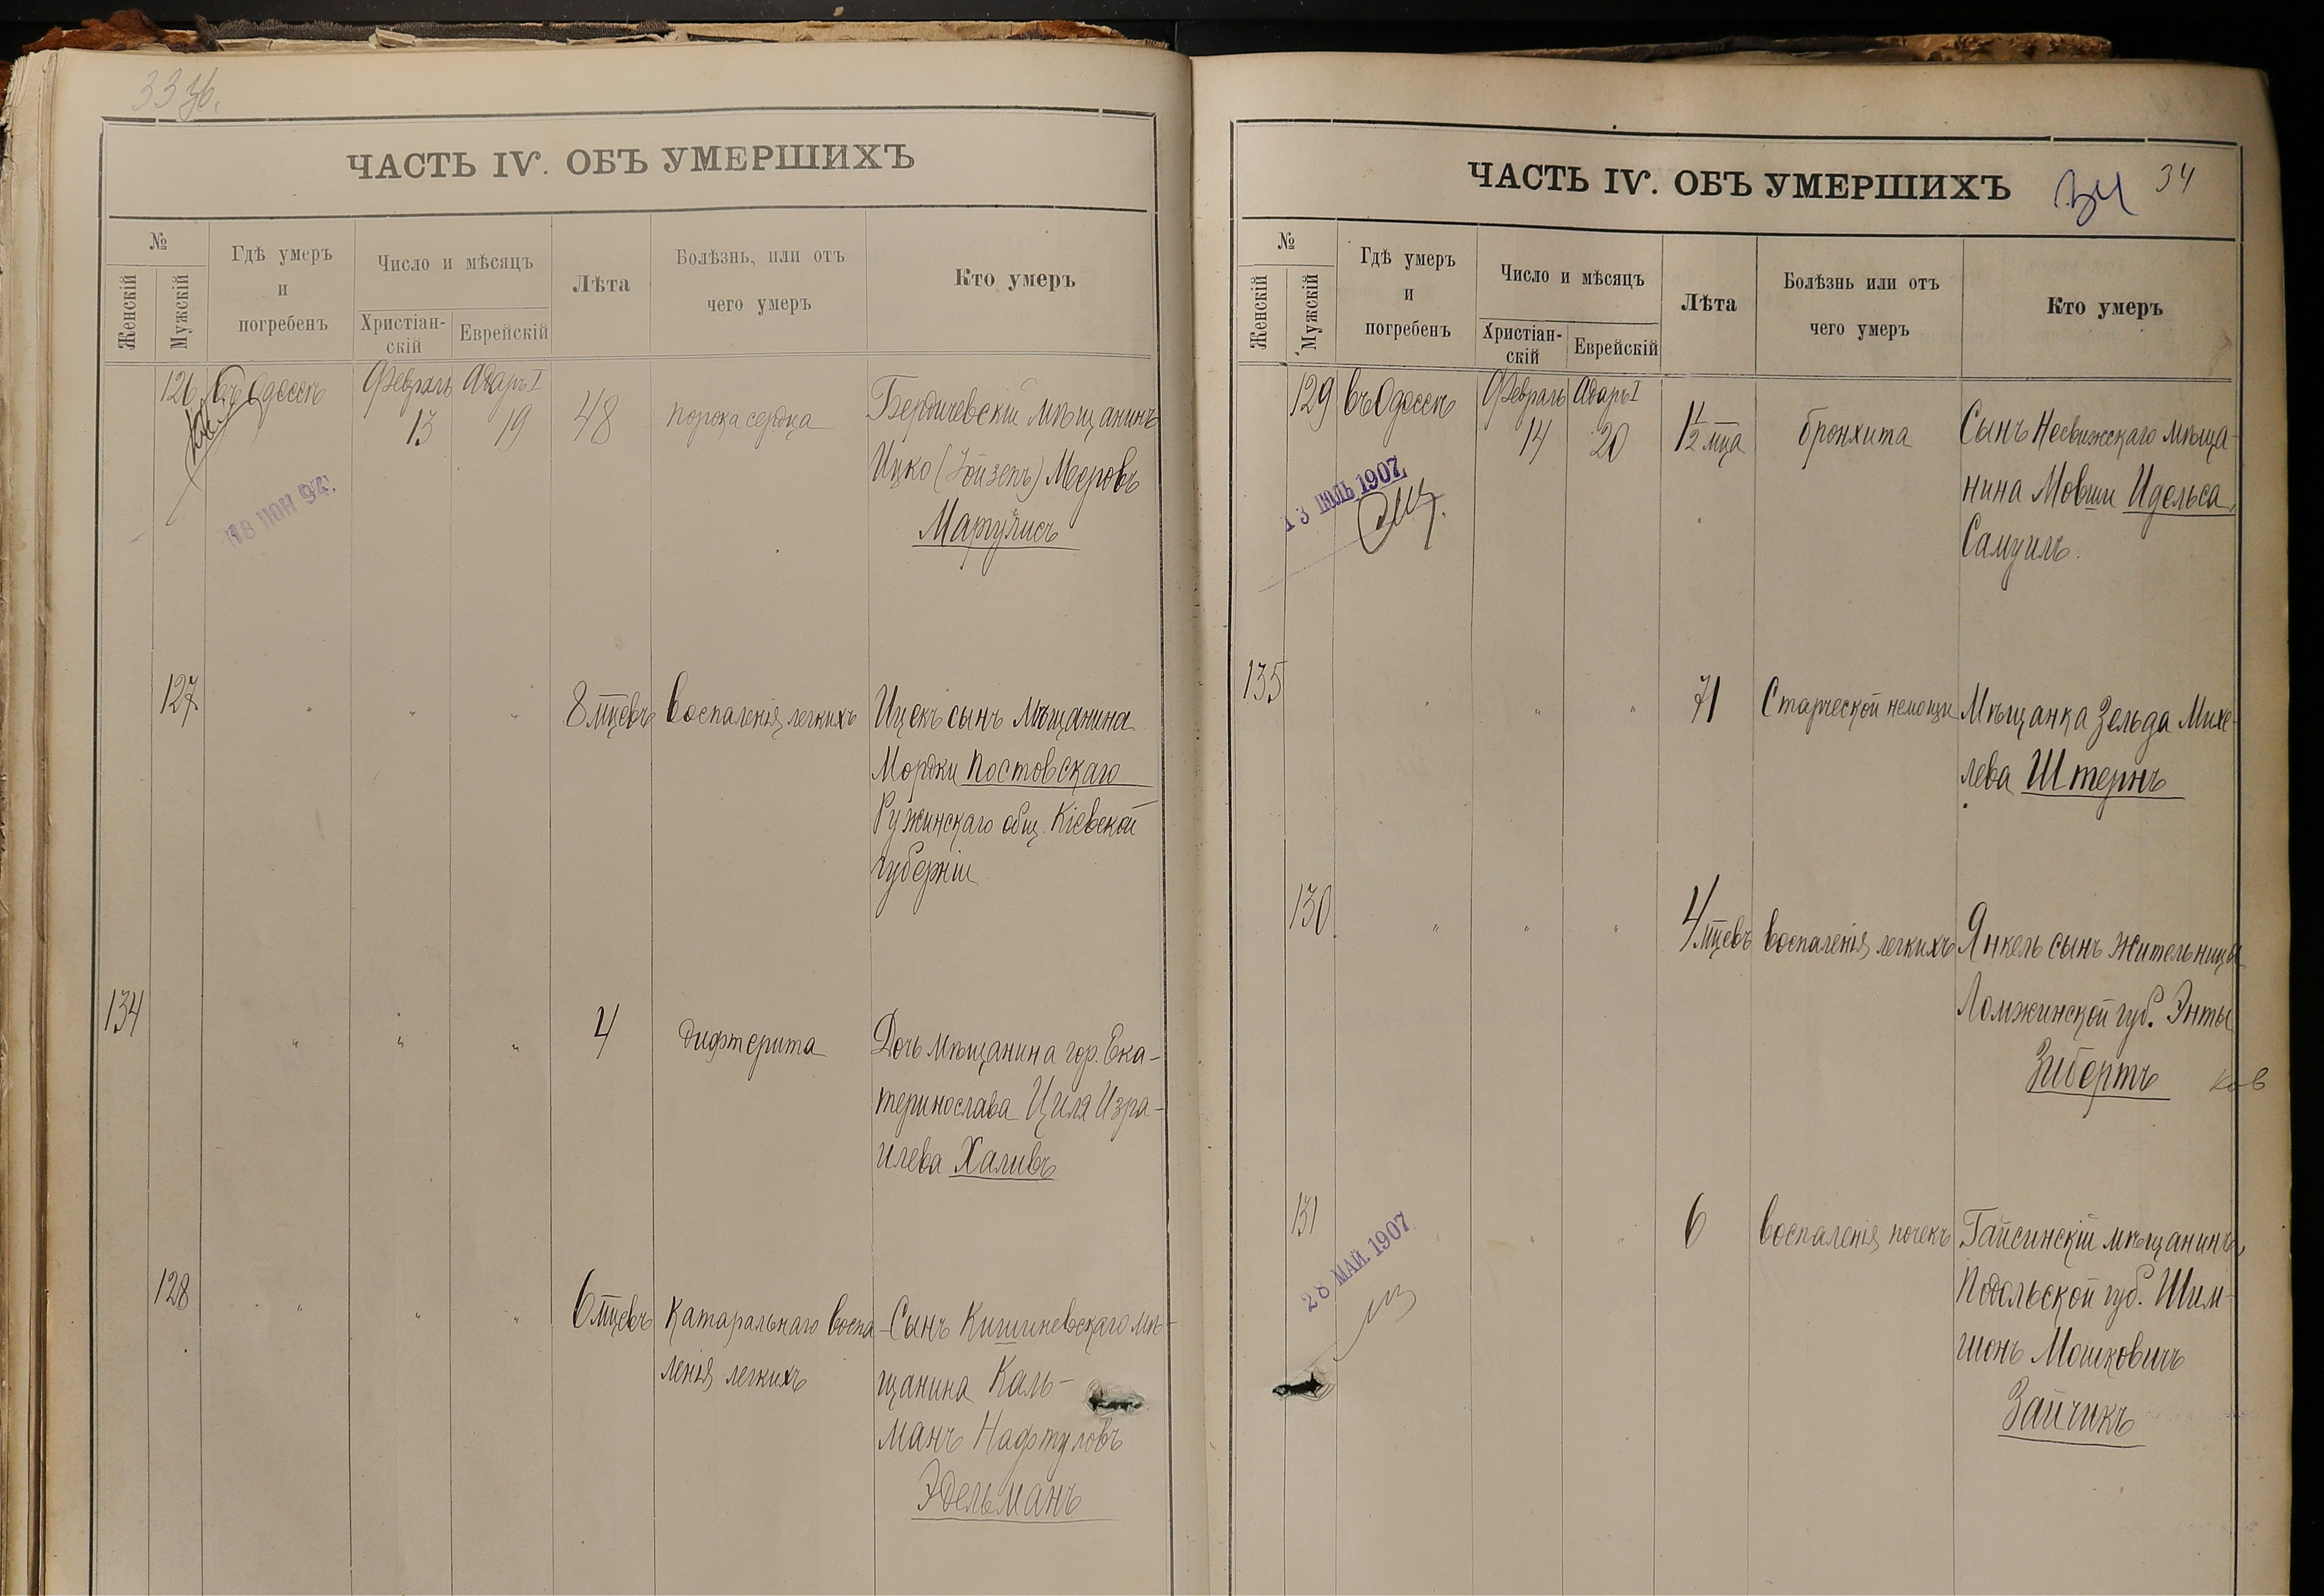 33 об.
ЧАСТЬ IV. ОБЪ УМЕРШИХЪ
№
Женскій
Мужскій
Гдѣ умеръ
и
погребенъ
Число и мѣсяцъ
Христіан-
скій
Еврейскій
Лѣта
Болѣзнь, или отъ
чего умеръ
Кто умеръ
126 въ Одессѣ Февраль Адаръ I
13 19 48 порока сердца Бердичевскій мѣщанинъ
Ицко (Зойзепъ) Мееровъ
Маргулисъ
18 ІЮН
127 " " " 8 мцевъ воспаленія легкихъ Ицекъ сынъ мѣщанина
Мордки Постовскаго
Ружинскаго общ. Кіевской
губерніи
134 " " " 4 дифтерита Дочь мѣщанина гор. Ека-
теринослава Циля Изра-
илева Халивъ
128 " " " 6 мцевъ катаральнаго воспа- Сынъ Кишиневскаго мѣ-
ленія легкихъ щанина Каль-
манъ Нафтуловъ
Эдельманъ
ЧАСТЬ IV. ОБЪ УМЕРШИХЪ 34 34
№
Женскій
Мужскій
Гдѣ умеръ
и
погребенъ
Число и мѣсяцъ
Христіан-
скій
Еврейскій
Лѣта
Болѣзнь или отъ
чего умеръ
Кто умеръ
129 въ Одессѣ Февраль Адаръ I
14 20 1 1/2 мца бронхита Сынъ Несвижскаго мѣща-
нина Мовши Идельса,
Самуилъ.
13 ІЮЛЬ 1907
135 " " " 71 Старческой немощи Мѣщанка Зельда Михе-
лева Штернъ
130 " " " 4 мцевъ воспаленія легкихъ Янкель сынъ жительницы
Ломжинской губ. Энты
Зибертъ
131 " " " 6 воспаленія почекъ Гайсинскій мѣщанинъ,
Подольской губ. Шим-
шонъ Мошковичъ
Зайчикъ
28 МАЙ. 1907